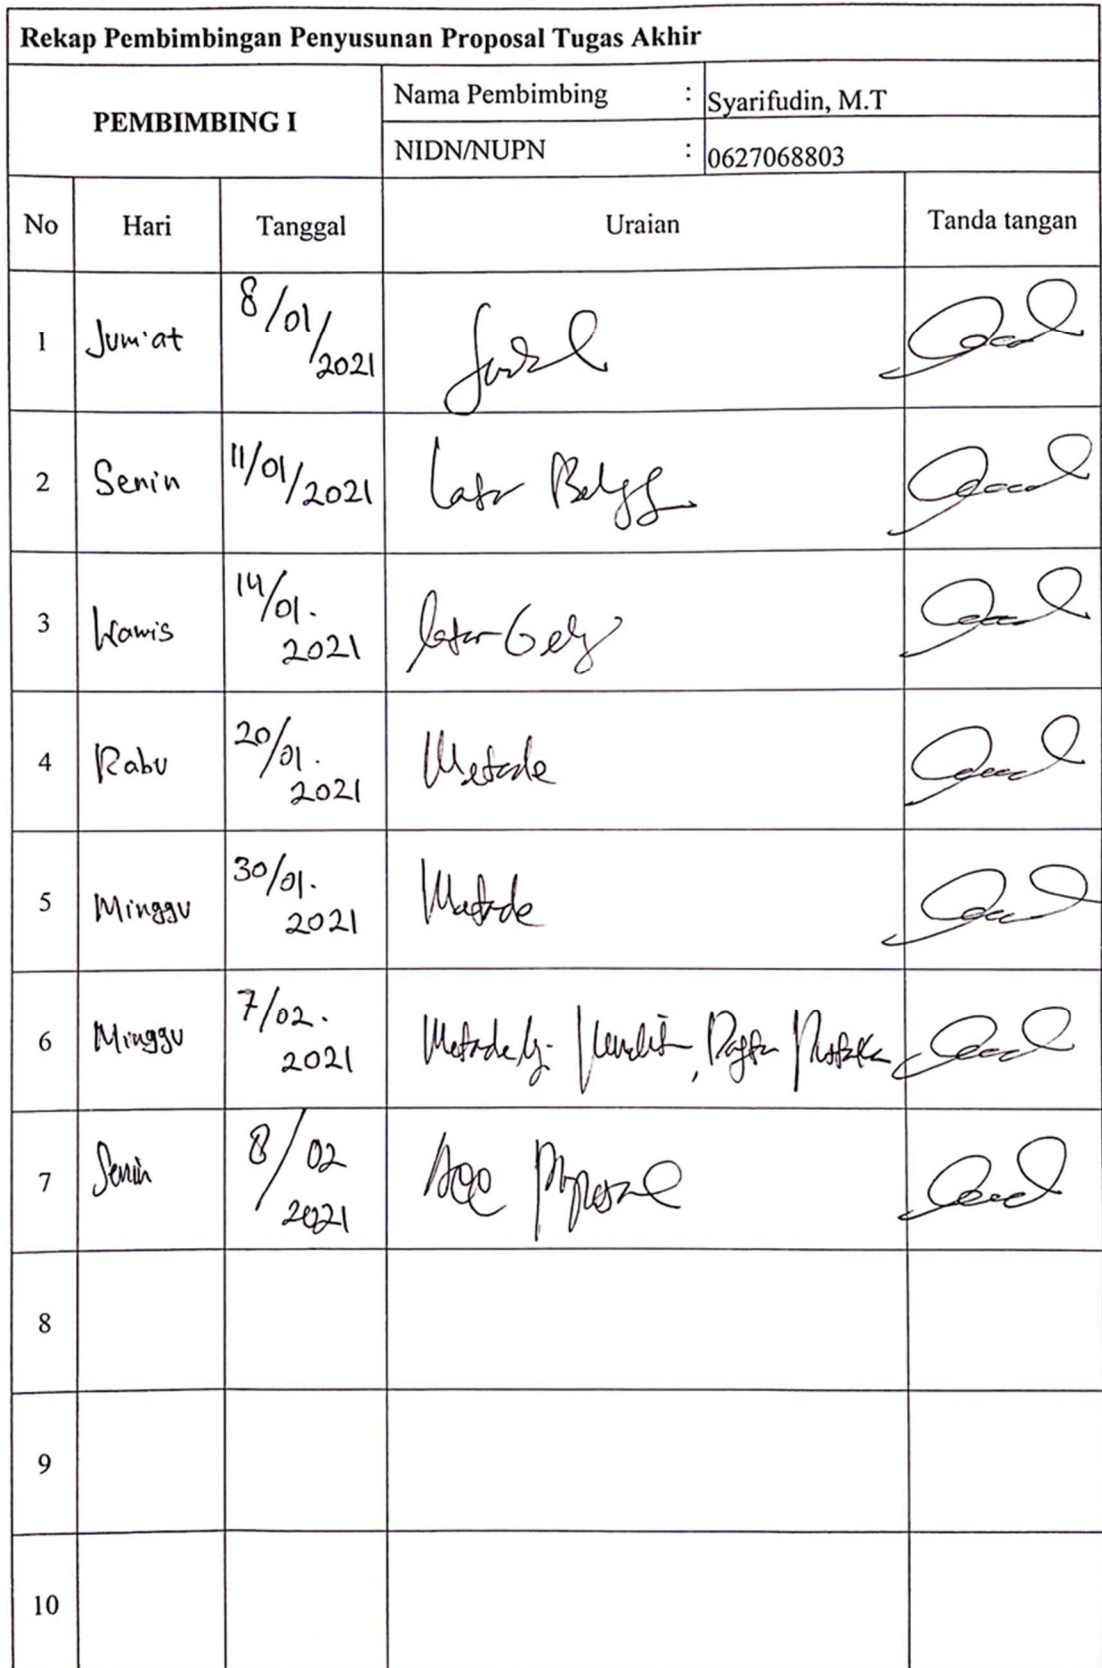 Rekap Pembimbingan Penyusunan Proposal Tugas Akhir
PEMBIMBING I
Nama Pembimbing : Syarifudin, M.T
NIDN/NUPN : 0627068803
No Hari Tanggal Uraian Tanda tangan
1 Jum'at 8/01/2021 Judul
2 Senin 11/01/2021 Latar
3 Kamis 14/01. 2021 latar
4 Rabu 20/01. 2021 Metode
5 Minggu 30/01. 2021 Metode
6 Minggu 7/02. 2021 Daftar Pustaka
7 Senin 8/02 2021 Acc Proposal
8
9
10